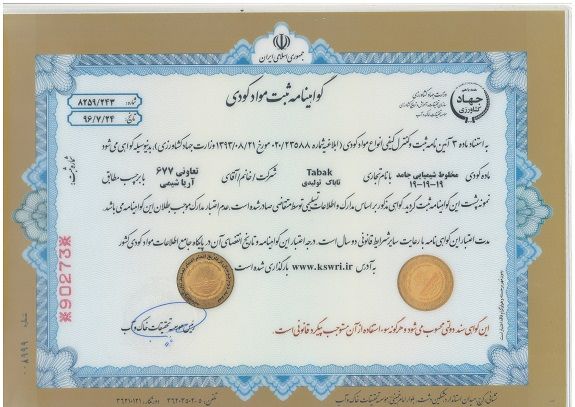 جمهوری اسلامی ایران
گواهینامه ثبت مواد کودی
شماره: ۸۲۵۹/۲۴۳
تاریخ: ۹۶/۷/۲۴
وزارت جهاد کشاورزی
جهاد
کشاورزی
موسسه تحقیقات خاک و آب
شماره ثبت:
به استناد ماده ۳ آیین نامه ثبت و کنترل کیفی انواع مواد کودی (ابلاغیه شماره ۰۲۰/۲۳۵۸۸ مورخ ۱۳۹۳/۰۸/۲۱ وزارت جهاد کشاورزی)، بدینوسیله گواهی می شود
ماده کودی مخلوط شیمیایی جامد ۱۹-۱۹-۱۹ با نام تجاری Tabak تاباک تولیدی شرکت / خانم / آقای تعاونی ۶۷۷ آریا شیمی با برچسب مطابق
نمونه پشت این گواهینامه ثبت گردید. گواهی مذکور بر اساس مدارک و اطلاعات تسلیمی توسط متقاضی صادر شده است. عدم اعتبار مدارک موجب بطلان این گواهینامه می باشد.
مدت اعتبار این گواهی نامه با رعایت سایر شرایط قانونی دو سال است. درجه اعتبار این گواهینامه و تاریخ انقضای آن در پایگاه جامع اطلاعات مواد کودی کشور
به آدرس www.kswri.ir بارگذاری شده است.
رئیس موسسه تحقیقات خاک و آب
این گواهی سند دولتی محسوب می شود و هرگونه سوء استفاده از آن مستوجب پیگرد قانونی است.
※90273※
۰۰۸۹۹۹